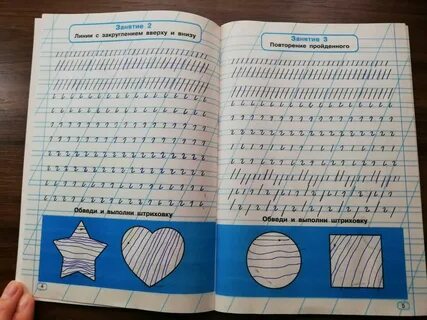 Занятие 2
Линии с закруглением вверху и внизу
Обведи и выполни штриховку
4
Занятие 3
Повторение пройденного
Обведи и выполни штриховку
5